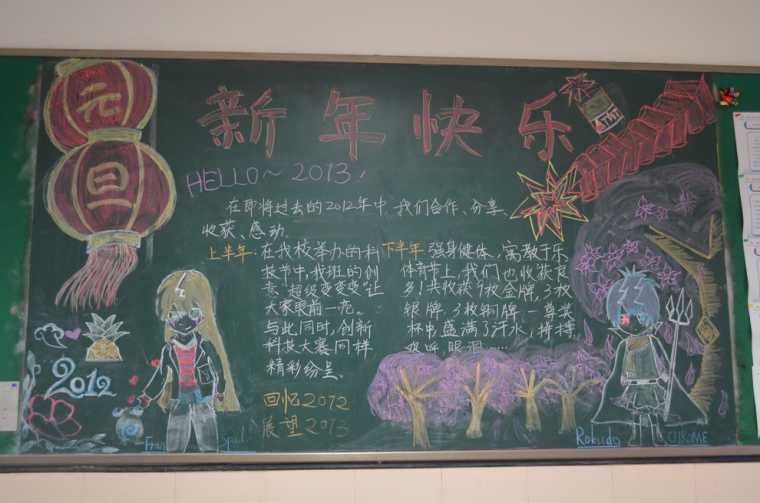 元
旦
新年快乐
HELLO~ 2013!
在即将过去的2012年中,我们合作、分享、
收获、感动。
上半年:在我校举办的科
技节中,我班的创
意"超级变变变"让
大家眼前一亮。
与此同时,创新
科技大赛同样
精彩纷呈。
下半年 强身健体,寓教于乐
体育节上,我们也收获良
多!共收获7枚金牌,3枚
银牌,3枚铜牌,一尊奖
杯中,盛满了汗水,拼搏
欢呼,眼泪……
回忆2012
展望2013
2012
Fran
Rokudo